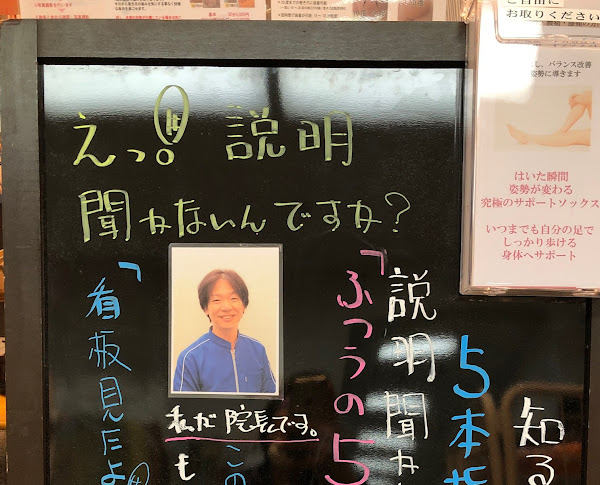 えっ!! 説明
聞かないんですか?
知る
5本指
説明聞か
「ふつうの5
私が院長です。
この
も
「看板見たよ
ご自由に
お取りください
し、バランス改善
姿勢に導きます
はいた瞬間
姿勢が変わる
究極のサポートソックス
いつまでも自分の足で
しっかり歩ける
身体へサポート